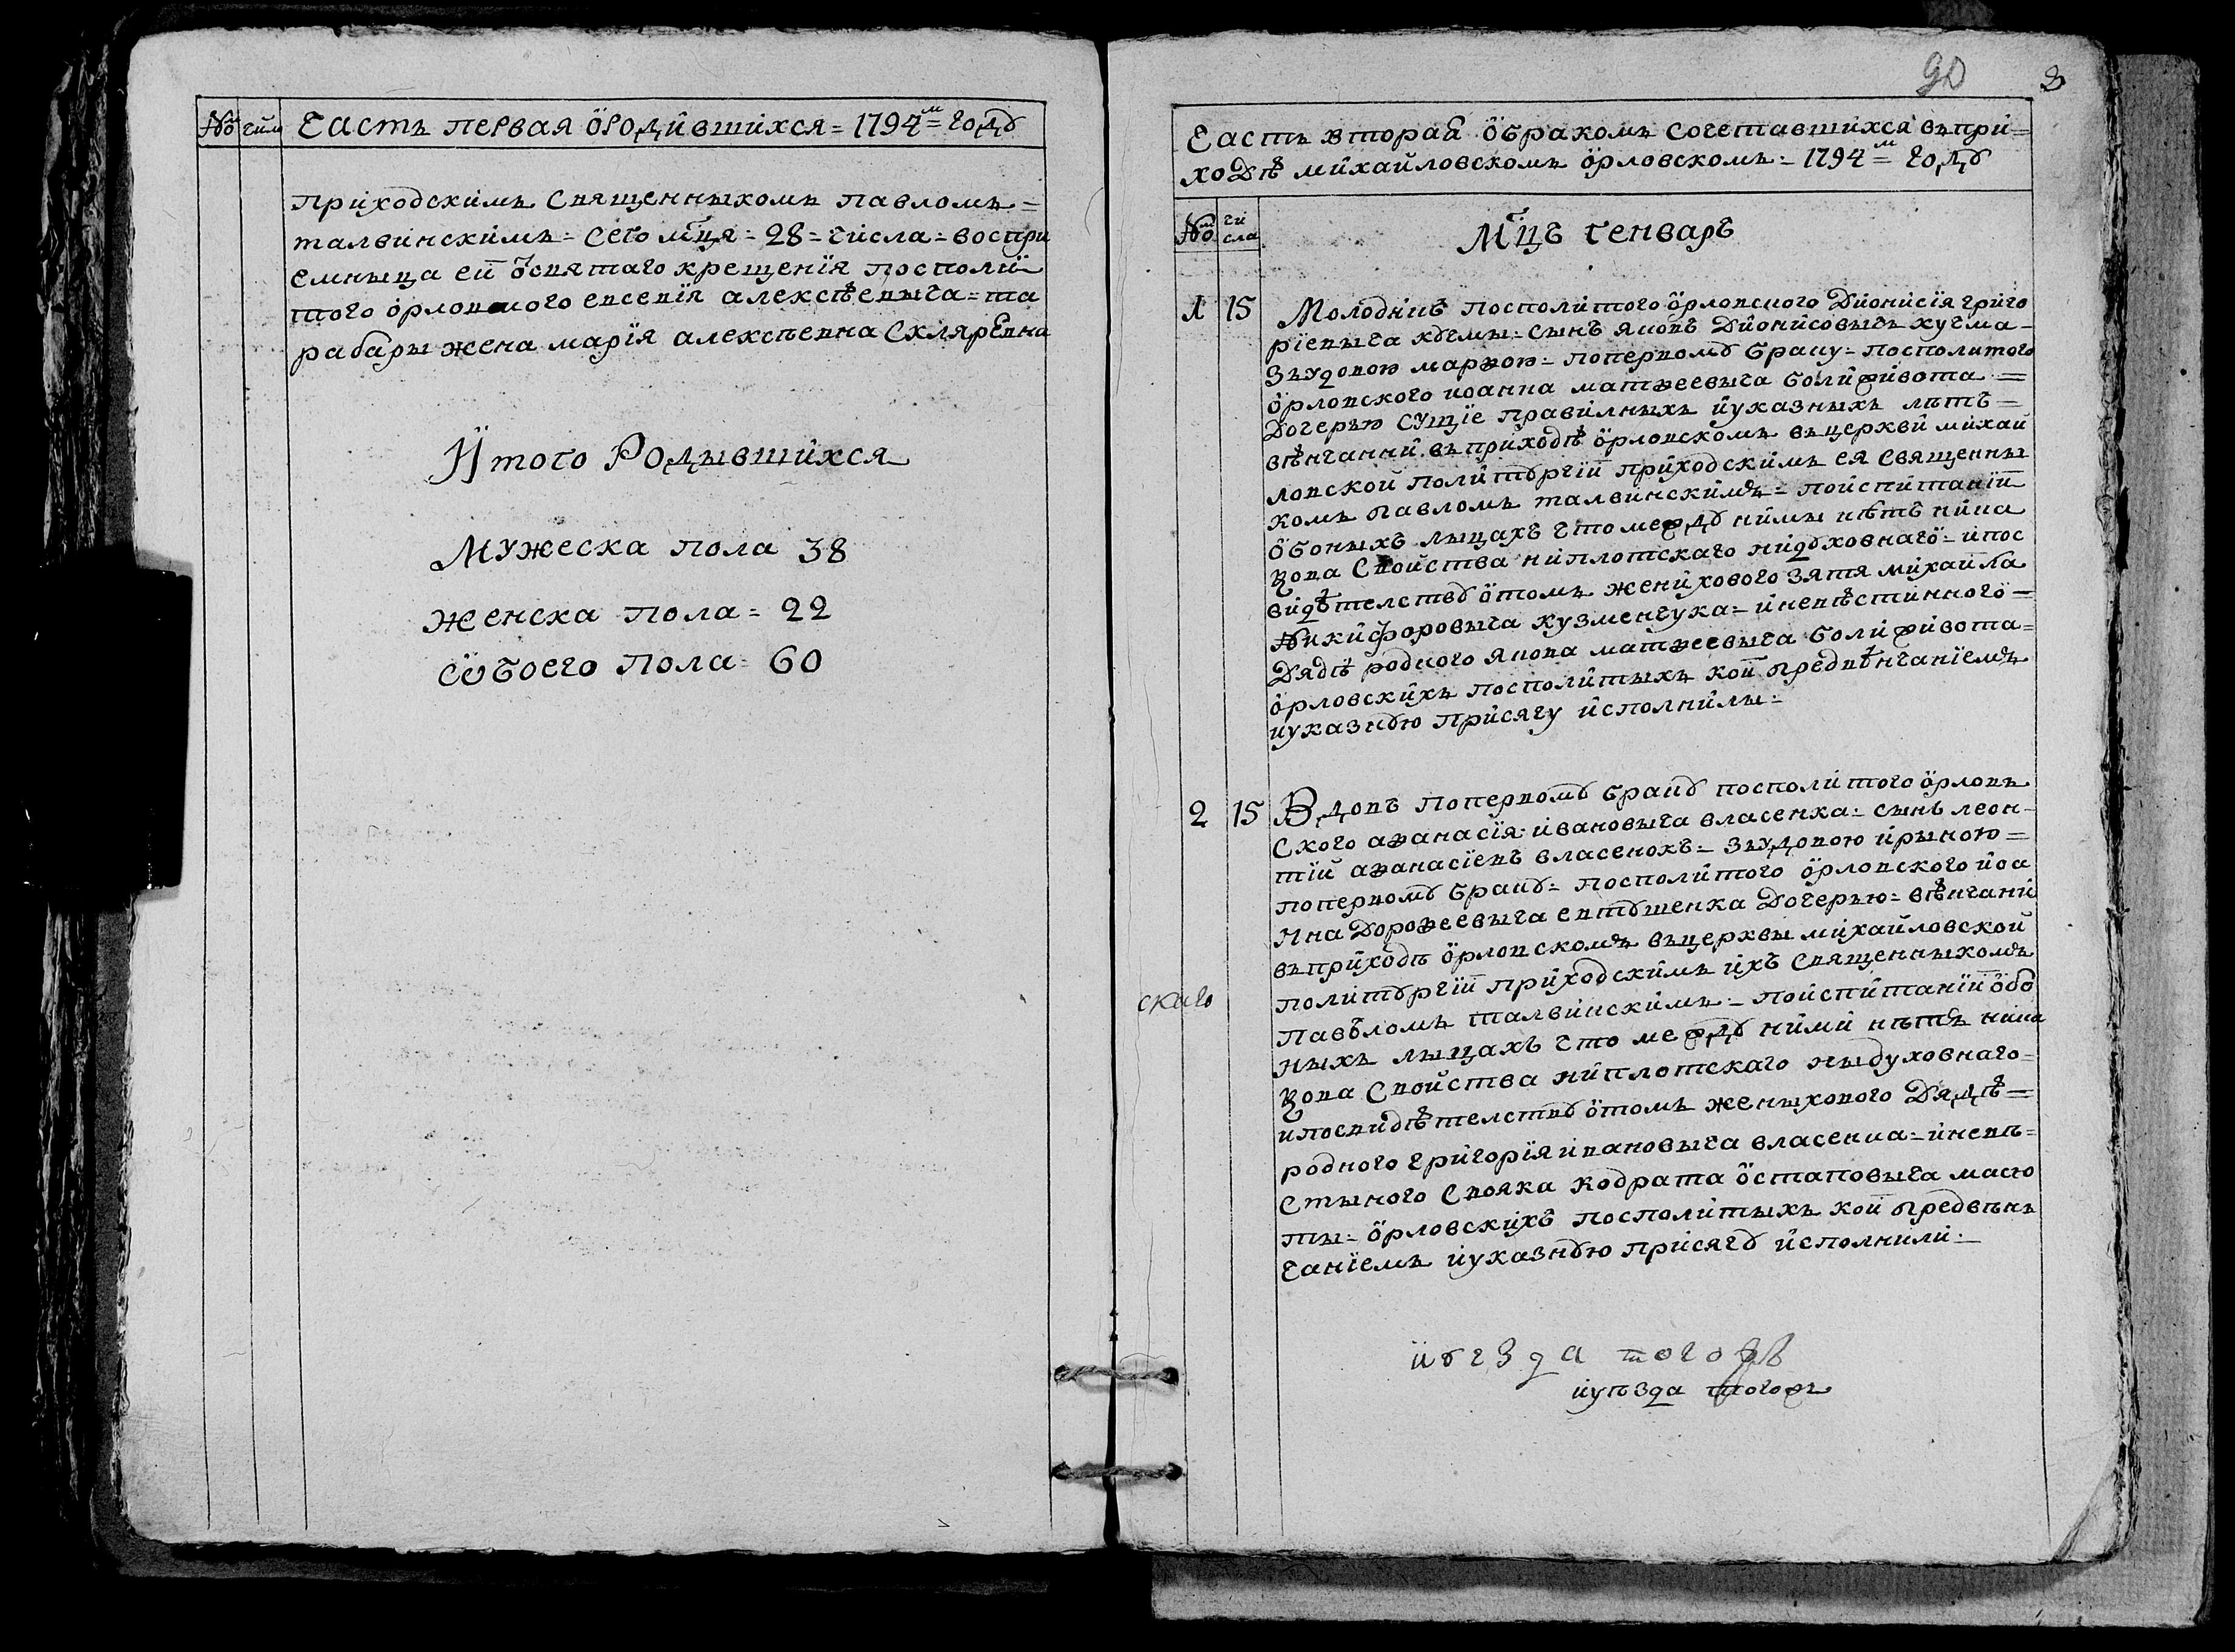 № числ Часть первая ородившихся = 1794м = году
приходскимъ священныкомъ павломъ =
талвинскимъ = сего мця = 28 = числа = воспри
емныца ей ѿ святаго крещенїя посполи
того орловского евсевїя алексѣевыча = та
рабары жена марїя алексѣевна Скляревна
Итого Родывшихся
Мужеска пола 38
женска пола = 22
Собоего пола = 60
90 3
Часть вторая обракомъ сочетавшихся въпри =
ходѣ михайловскомъ орловскомъ = 1794м = году
№ чи
сла
Мцъ генваръ
1 15 Молодикъ посполитого орловского Дионисїя григо
рїевыча кучмы = сынъ яковъ Дионисовычъ кучма -
зъудовою марѳою = поперномъ браку = посполитого
орловского иоанна матѳеевыча болиживота =
Дочерью сущїе правилныхъ иуказныхъ лѣтъ =
вѣнчанни въприходѣ орловскомъ въцеркви михай
ловской политургїи приходскимъ ея священны
комъ павломъ талвинскимъ = поиспитанїи
обоныхъ лыцахъ что между нимы нѣтъ ника
кова свойства ниплотскаго нидуховнаго = ипос
видѣтелству отомъ женихового зятя михайла
никифоровыча кузменчука = иневѣстинного =
Дядѣ родного якова матѳеевыча болиживота =
орловскихъ посполитыхъ кои предвѣнчанїемъ
иуказную присягу исполнилы =
2 15 Вдовъ поперному браку посполитого орловъ
ского аѳанасїя ивановыча власенка = сынъ леон -
тїй аѳанасїевъ власенокъ = зъудовою ирыною =
поперному браку = посполитого орловского иоа
нна Дороѳеевыча евтушенка Дочерью = вѣнчани
въприходѣ орловскомъ въцерквы михайловской
политургїи приходскимъ ихъ священныкомъ
павъломъ талвинскимъ = поиспитанїи обо
ныхъ лыцахъ что между ними нѣтъ ника
кова свойства ниплотскаго ныдуховнаго =
ипосвидѣтелству отомъ женыхового Дядѣ =
родного григорїя ивановыча власенка = иневѣ =
стыного свояка кодрата остаповыча масю
ты = орловскихъ посполитыхъ кои предвѣнъ
чанїемъ иуказную присягу исполнили =
скаго
иуезда тогожъ
иуѣзда тогожъ